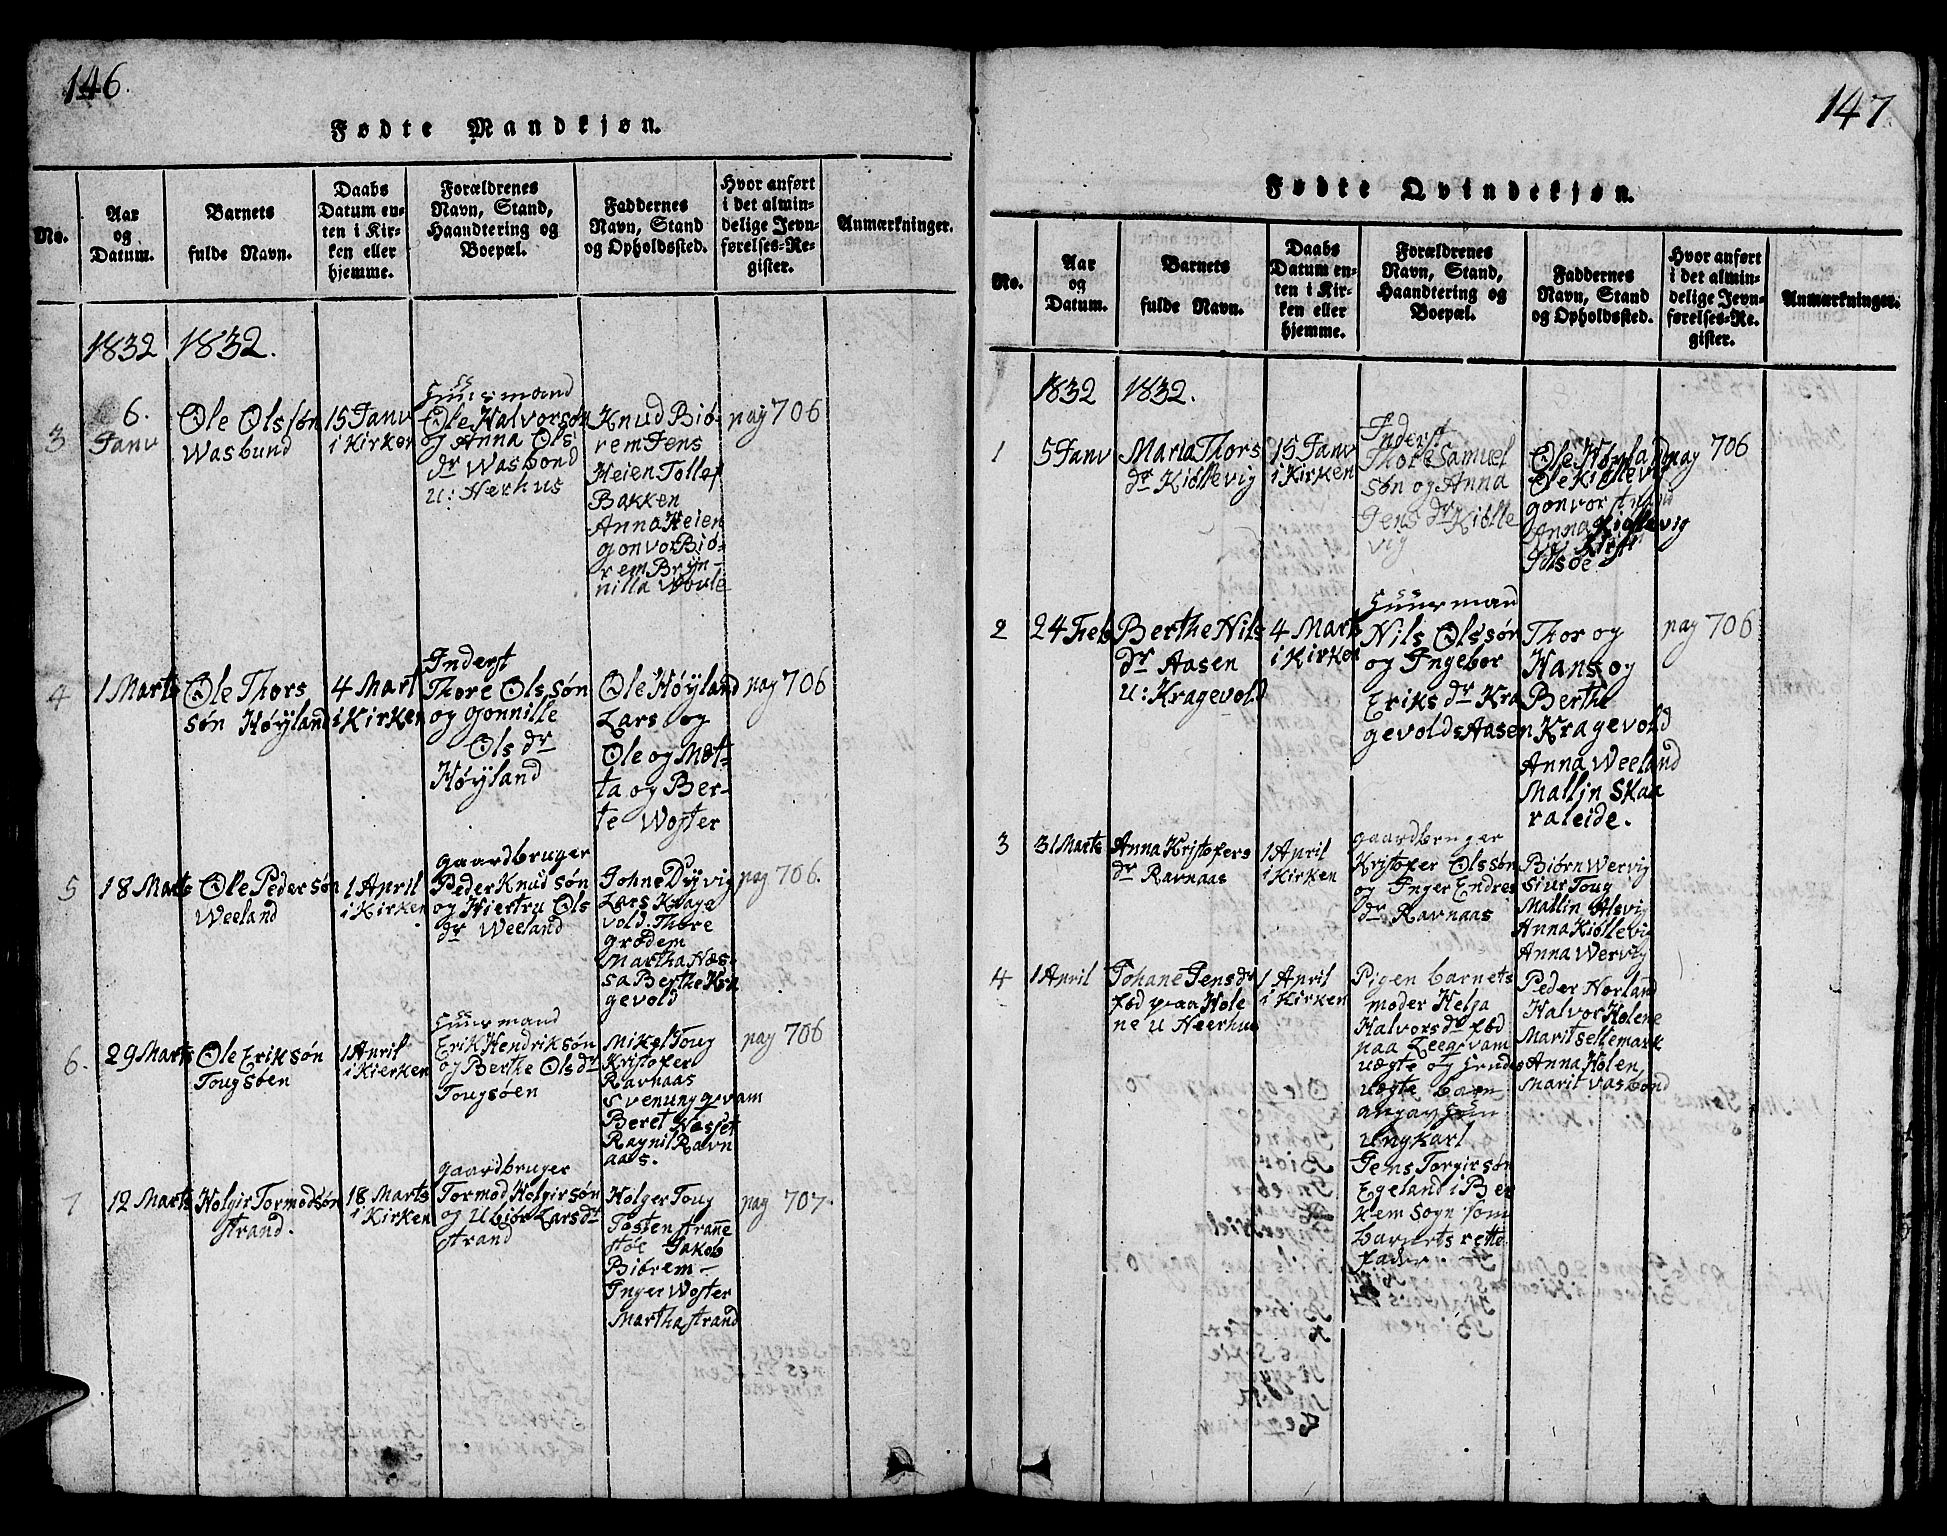 146.
Fødte Mandkjøn.
No.
Aar
og
Datum.
Barnets
fulde Navn.
Daabs
Datum en-
ten i Kir-
ken eller
hjemme.
Forældrenes
Navn, Stand,
Haandtering og
Boepæl.
Faddernes
Navn, Stand
og Opholdssted.
Hvor anført
i det almin-
delige Jevn-
førelses-Re-
gister.
Anmærkninger.
1832
1832.
3
6.
Janv
Ole Olssøn
Wasbund
15 Janv
i Kirken
Huusmand
Ole Halvorsøn
og Anna Ols
dr Wasbond
u: Nærhus
Knud Biø-
rem Jens
Heien Tollef
Bakken
Anna Heien
gonvor Biø-
rem Bryn-
nilla
pag 706
4
1 Marts
Ole Thors
søn Høyland
4 Mart
i Kirken
Inderst
Thore Olssøn
og gonnille
Ols dr
Høyland
Ole Høyland
Lars og
Ole og Met-
ta og Ber-
te Woster
pag 706
5
18 Marts
Ole Pedersøn
Weeland
1 April
i Kirken
gaardbruger
Peder Knudsøn
og Hiertru Ols
dr Weeland
Johne Dyvig
Lars Krage
vold. Thore
grødem
Martha Næs-
sa Berthe Kra
gevold
pag 706.
6.
29 Marts
Ole Eriksøn
Tougsøen
1 April
i Kierken
Huusmand
Erik Hendriksøn
og Berthe Olsdr
Tougsøen
Mikel Toug
Kristofer
Ravnaas
Svenung qvam
Beret Næsset
Ragnil Ravn
aas.
pag 706
7
12 Marts
Holgir Tormodsøn
strand.
18 Marts
i Kirken
gaardbruger
Tormod Holgirsøn
og Ubiør Larsdr
strand
Holger Toug
Tosten stranne
støe Jakob
Biørem
Inger Woster
Martha strand
pag 707.
147
Fødte Qvindekjøn.
No.
Aar
og
Datum.
Barnets
fulde Navn.
Daabs
Datum en-
ten i Kir-
ken eller
hjemme.
Forældrenes
Navn, Stand,
Haandtering og
Boepæl.
Faddernes
Navn, Stand
og Opholdssted.
Hvor anført
i det almin-
delige Jevn-
førelses-Re-
gister.
Anmærkninger.
1832
1832.
1
5 Janv
Maria Thors
dr Kiøllevig
15 Janv
i Kirken
Inderst
Thore Samuel
søn og Anna
Jens dr Kiølle
vig
Ole Høyland
Ole Kiøllevig
gonvor strand
Anna Kiøllevig
Idsøe
pag 706
2
24 Feb
Berthe Nils
dr Aasen
u: Kragevold
4 Marts
i Kirken
Huusman
Nils Olssøn
og Ingebor
Eriks dr Kra
gevolds Aasen
Thor og
Hans og
Berthe
Kragevold
Anna Weeland
Mallin Skaa
raleide.
pag 706
3
31 Marts
Anna Kristofers
dr Ravnaas
1 April
i Kirken
gaardbruger
Kristofer Olssøn
og Inger Endres
dr Ravnaas
Biørn Wervig
Siur Toug
Mallin Alsvig
Anna Kiøllevig
Anna Wervig
4
1 April
Johane Jensdr
fød paa Hole
ne u Neerhus
1 April
i Kirken
Pigen barnets
moder Helja
Halvorsdr fød
paa Leeqvam
uægte og hendes
uægte barn
angav som
ungkarl
Jens Torgirsøn
Egeland i Ber
kem Sogn som
barnets rette
fader.
Peder Norland
Halvor Holene
Marit sellemark
Anna Holen,
Marit Vasbond